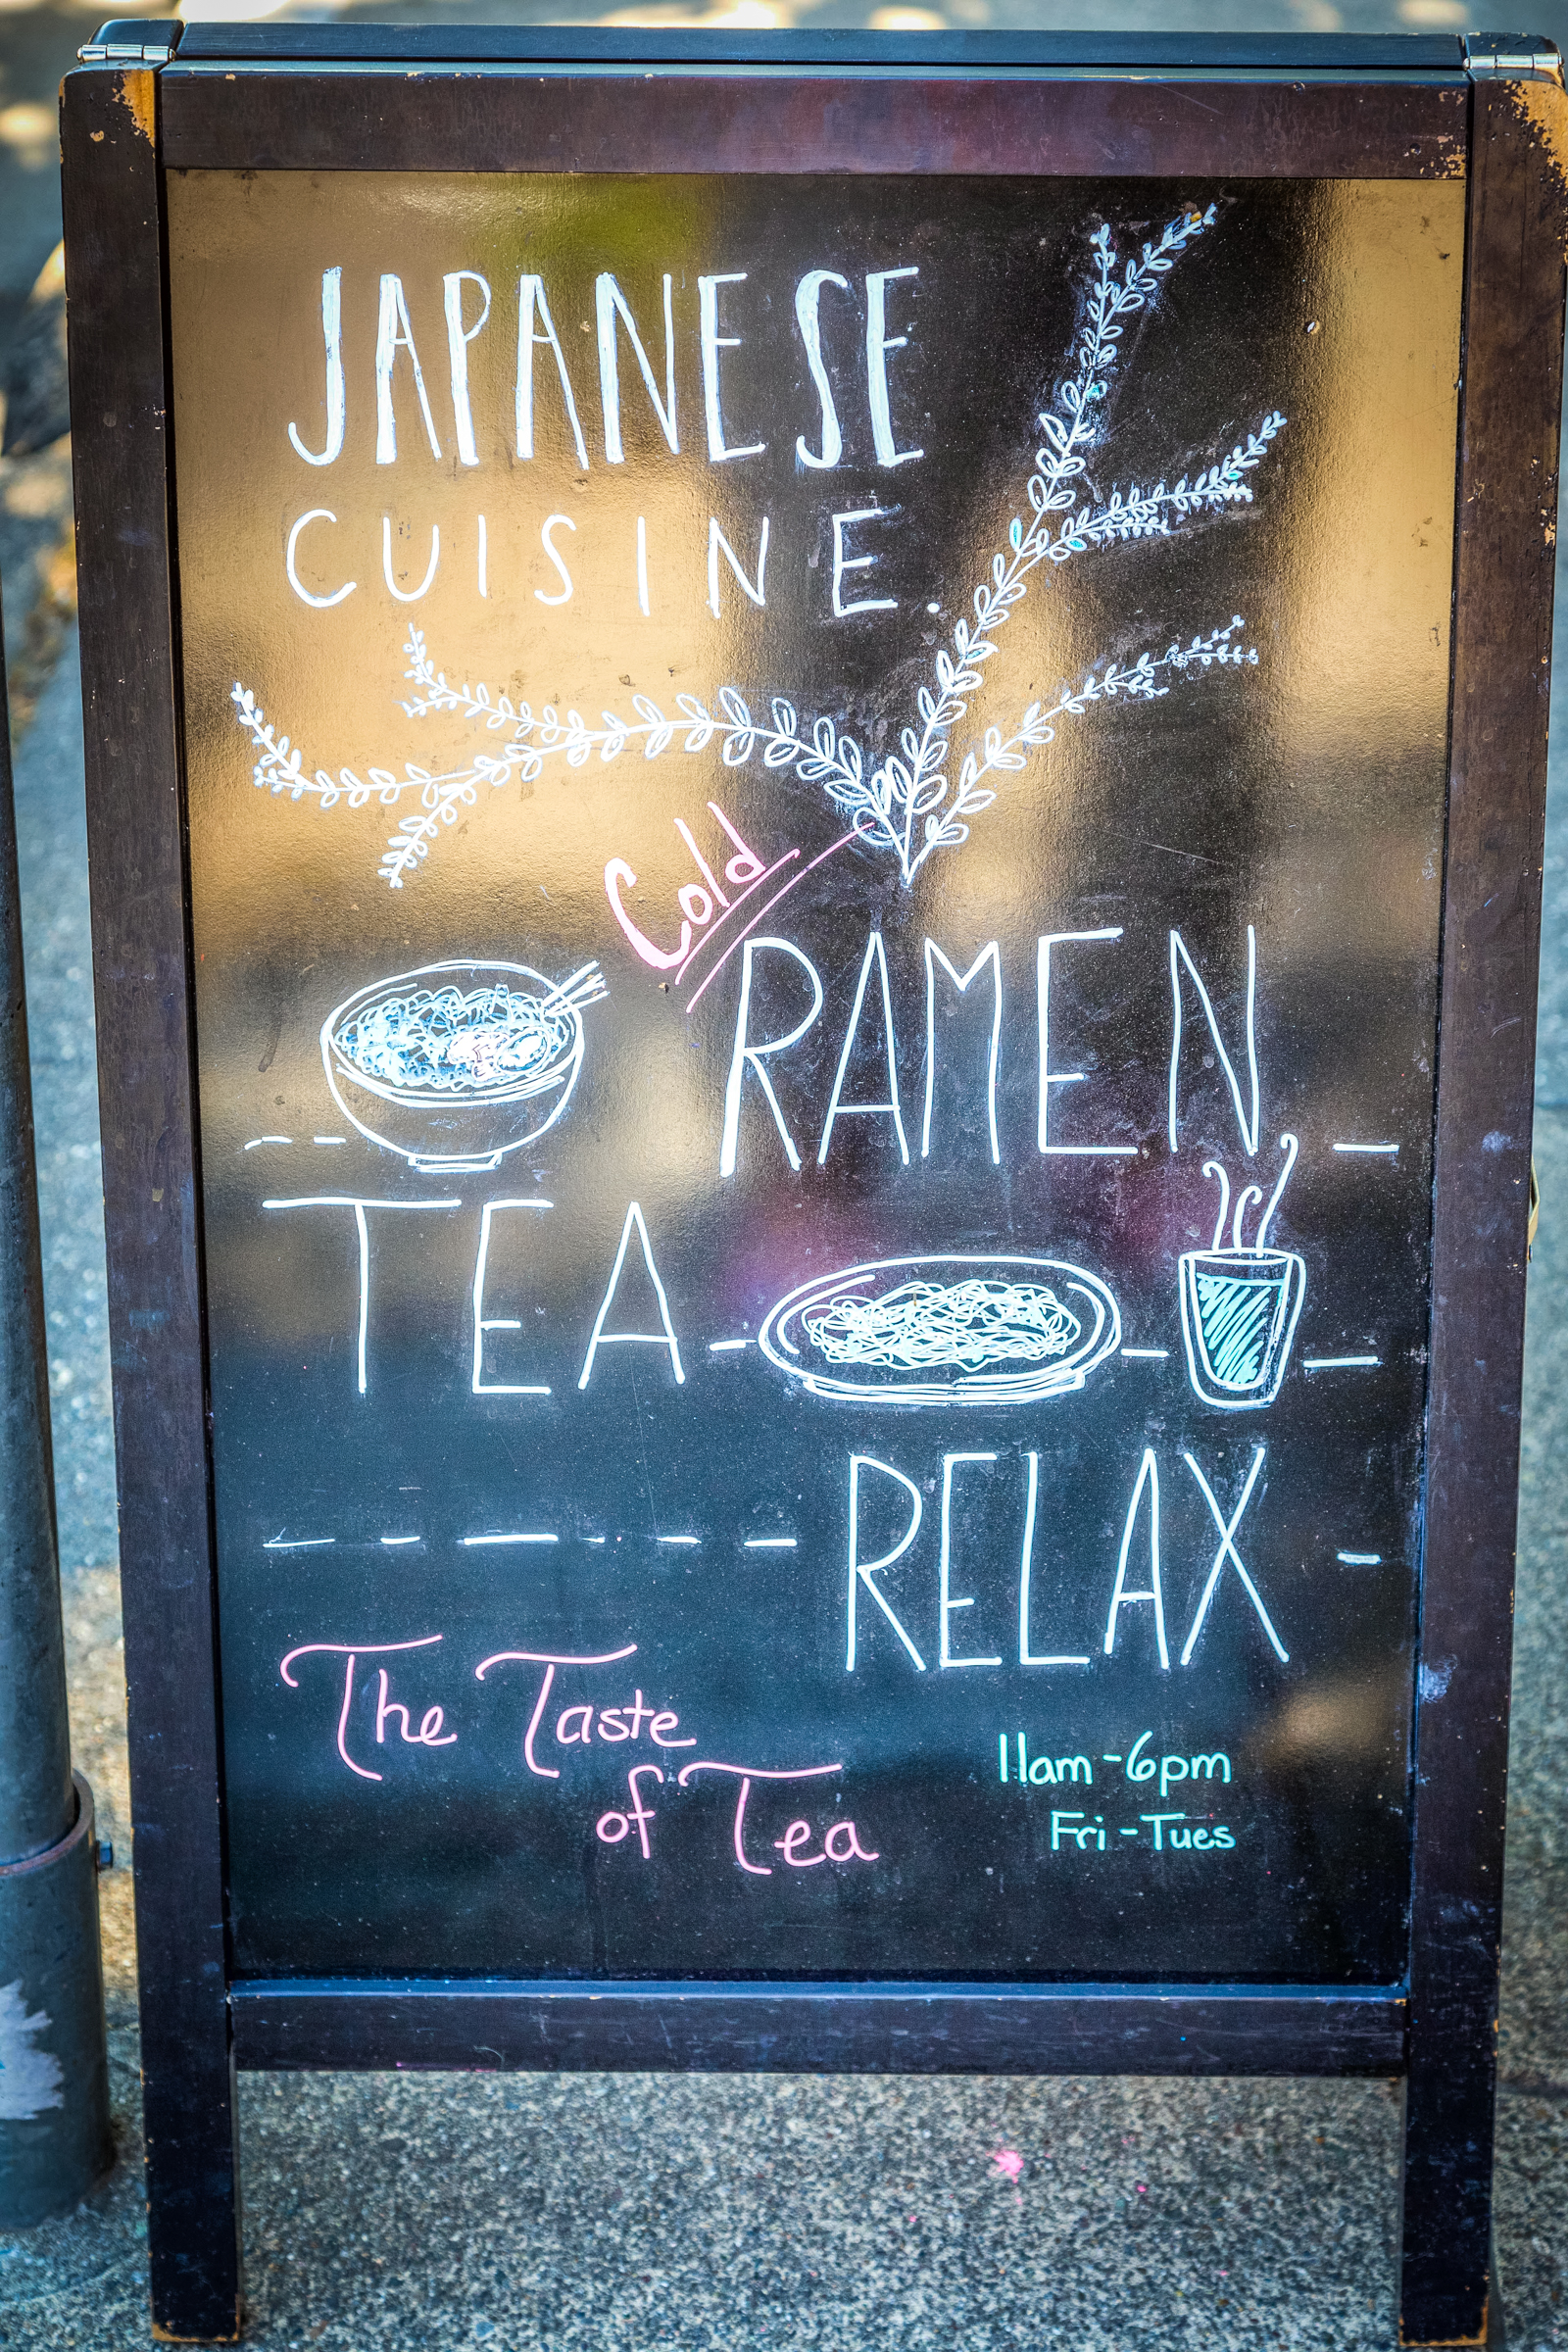 JAPANESE
CUISINE.
Cold
RAMEN,
TEA
RELAX
The Taste
of Tea
11am-6pm
Fri-Tues